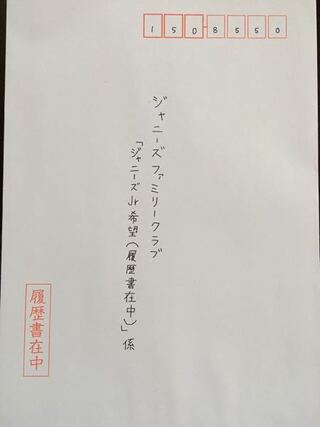 150-8550
ジャニーズファミリークラブ
「ジャニーズJr希望(履歴書在中)」係
履歴書在中